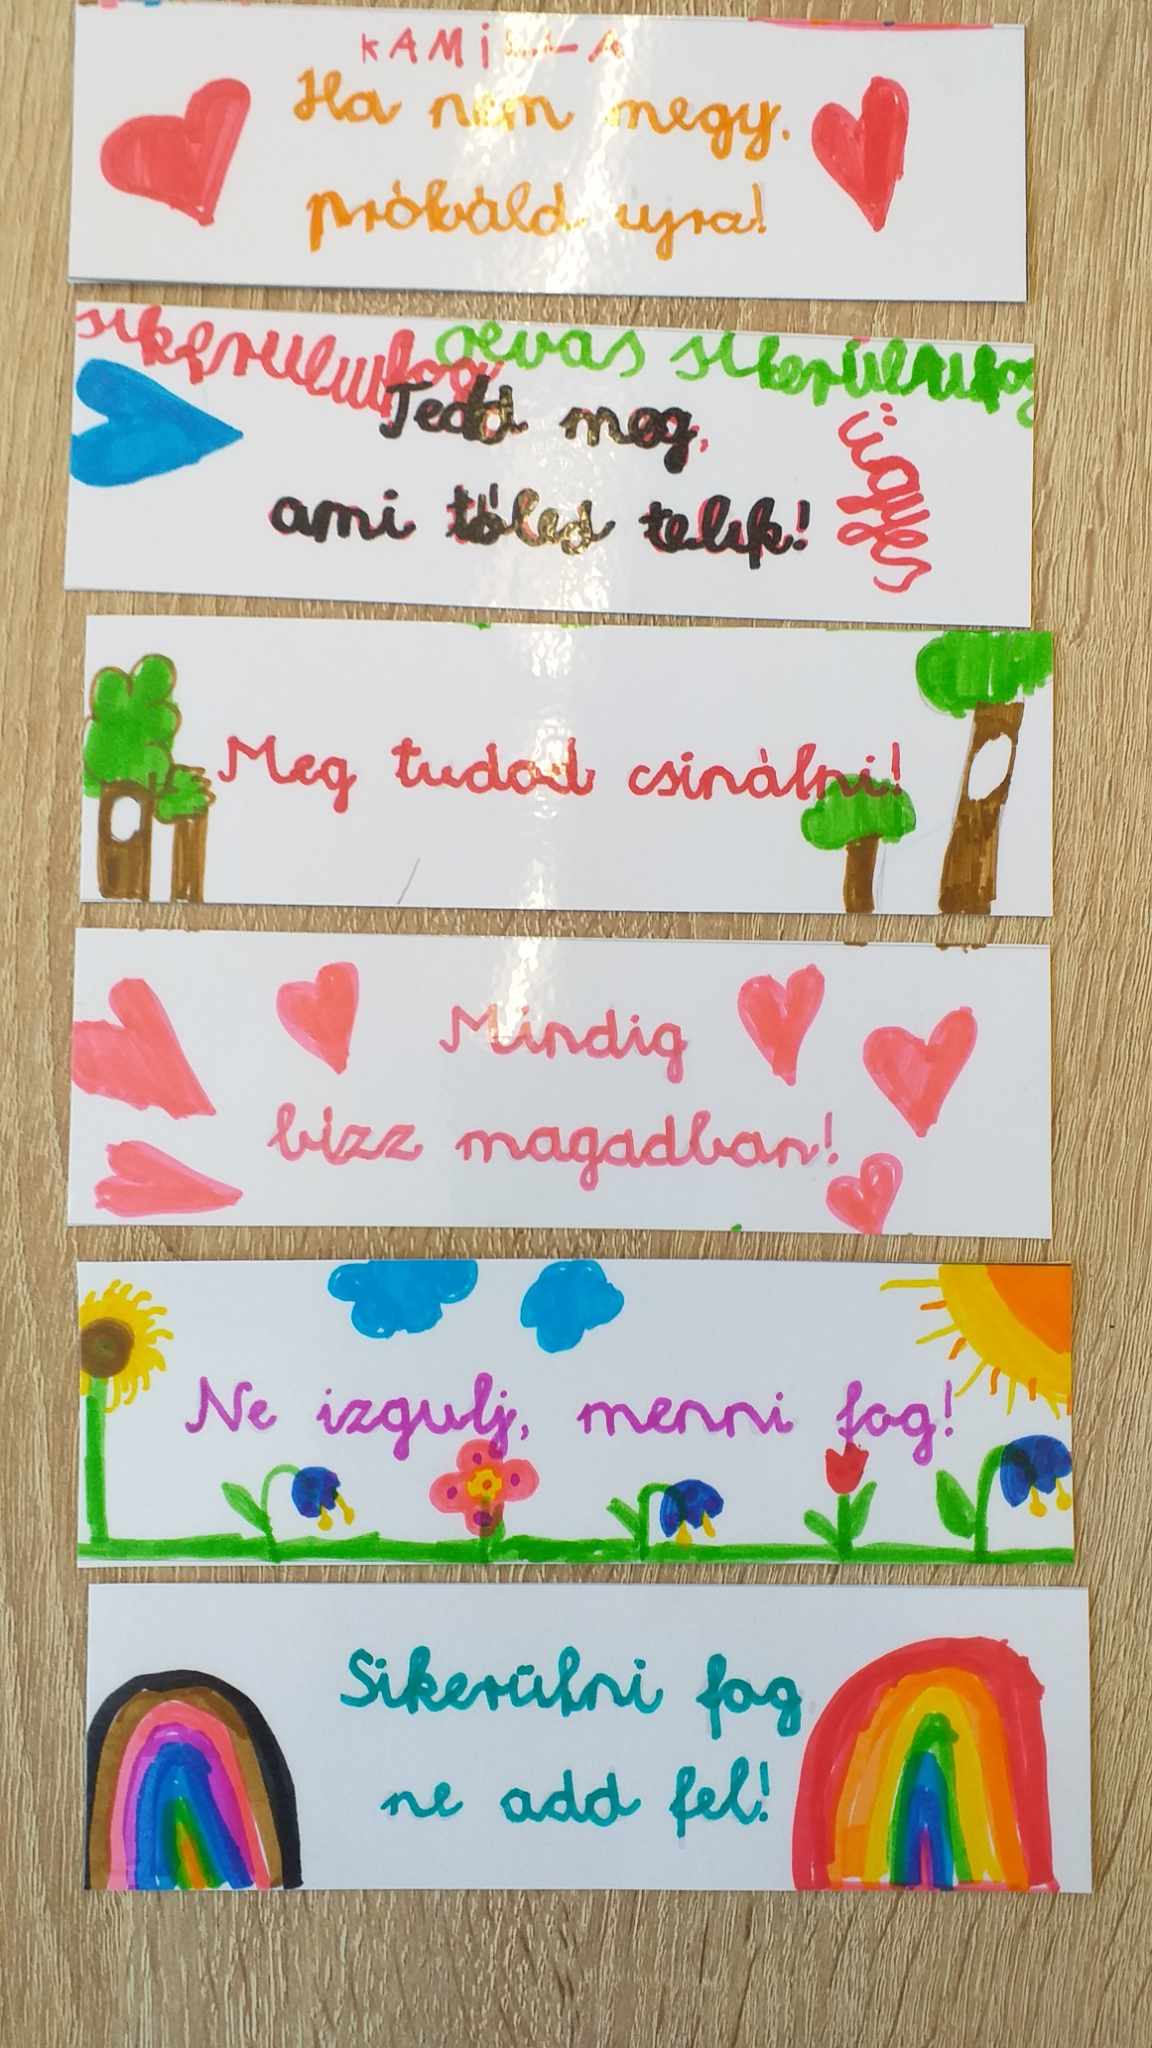 KAMiLLA
Ha nem megy,
próbáld ujra!
sikerülnifog
sikerülnifog
Tedd meg,
ami tőled telik!
ügyes
Meg tudod csinálni!
Mindig
bízz magadban!
Ne izgulj, menni fog!
Sikerülni fog
ne add fel!